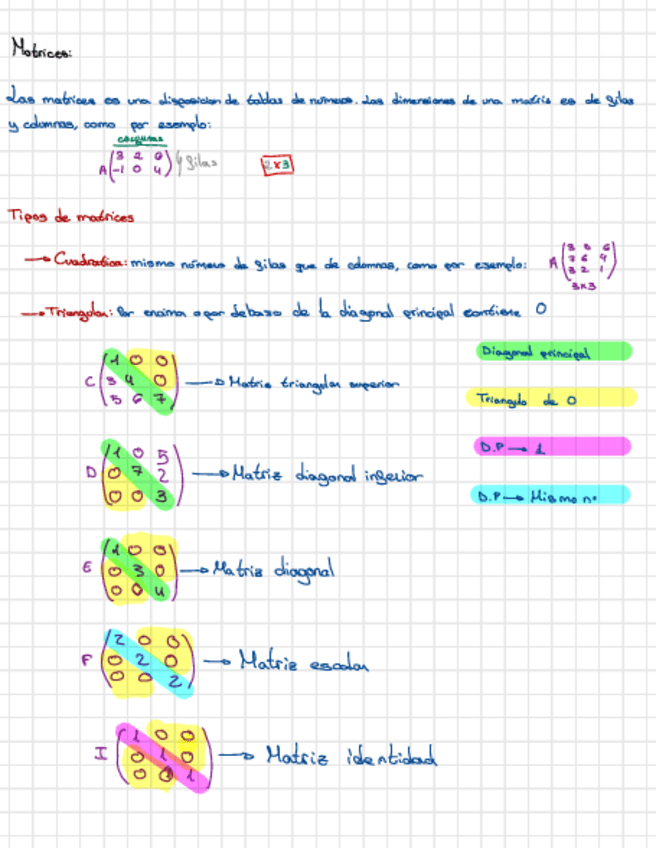 Matrices:
Las matrices es una disposicion de tablas de números. Las dimensiones de una matriz es de filas
y columnas, como por exemplo:
columnas
A (3 2 0
-1 0 4) filas 2x3
Tipos de matrices
→ Cuadratica: mismo número de filas que de columnas, como por exemplo: A
3 2 1
3x3
→ Triangular: Por encima o por debaxo de la diagonal principal contiene 0
Diagonal principal
C (1 0 0
3 4 0
5 6 7) → Matriz triangular superior
Triangulo de 0
D.P → 1
D (1 0 5
0 7 2
0 0 3) → Matriz diagonal inferior
D.P → Mismo nº
E (1 0 0
0 3 0
0 0 4) → Matriz diagonal
F (2 0 0
0 2 0
0 0 2) → Matriz escalar
I (1 0 0
0 1 0
0 0 1) → Matriz identidad